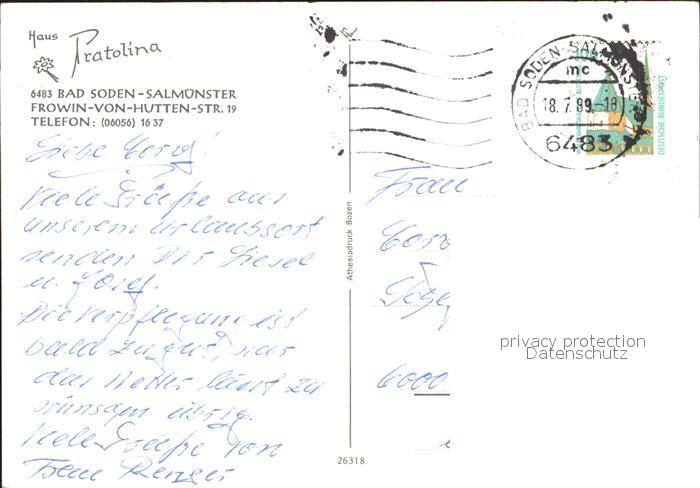 Haus
Pratolina
6483 BAD SODEN-SALMÜNSTER
FROWIN-VON-HUTTEN-STR. 19
TELEFON: (06056) 16 37
Liebe
Viele Grüße aus
unserem Urlaubsort
senden Dir Giesel
u. Josef.
Die Verpflegung ist
bald zu gut, nur
das Wetter lässt zu
wünschen übrig.
Viele Grüße von
Frau Renger
Athesiadruck Bozen
26318
BAD SODEN-SALMÜNSTER
mc
18.7.89.-18
6483
DEUTSCHE BUNDESPOST
Frau
6000
privacy protection
Datenschutz